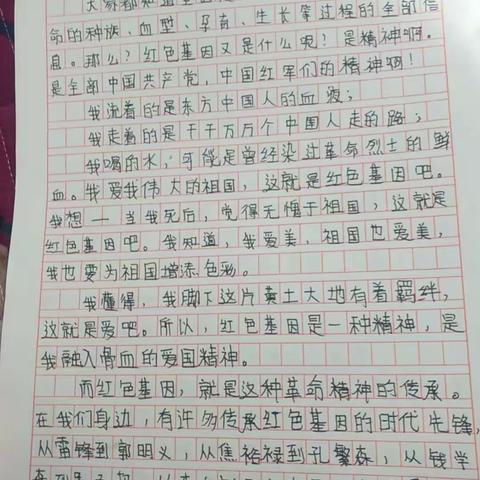 大家都知道基因
命的种族、血型、孕育、生长等过程的全部信
息。那么？红色基因又是什么呢？是精神啊。
是全部中国共产党，中国红军们的精神啊！
我流着的是东方中国人的血液；
我走着的是千千万万个中国人走的路；
我喝的水，可能是曾经染过革命烈士的鲜
血。我爱我伟大的祖国，这就是红色基因吧。
我想一当我死后，觉得无愧于祖国，这就是
红色基因吧。我知道，我爱美，祖国也爱美，
我也要为祖国增添色彩。
我懂得，我脚下这片黄土大地有着羁绊，
这就是爱吧。所以，红色基因是一种精神，是
我融入骨血的爱国精神。
而红色基因，就是这种革命精神的传承。
在我们身边，有许多传承红色基因的时代先锋，
从雷锋到郭明义，从焦裕禄到孔繁森，从钱学